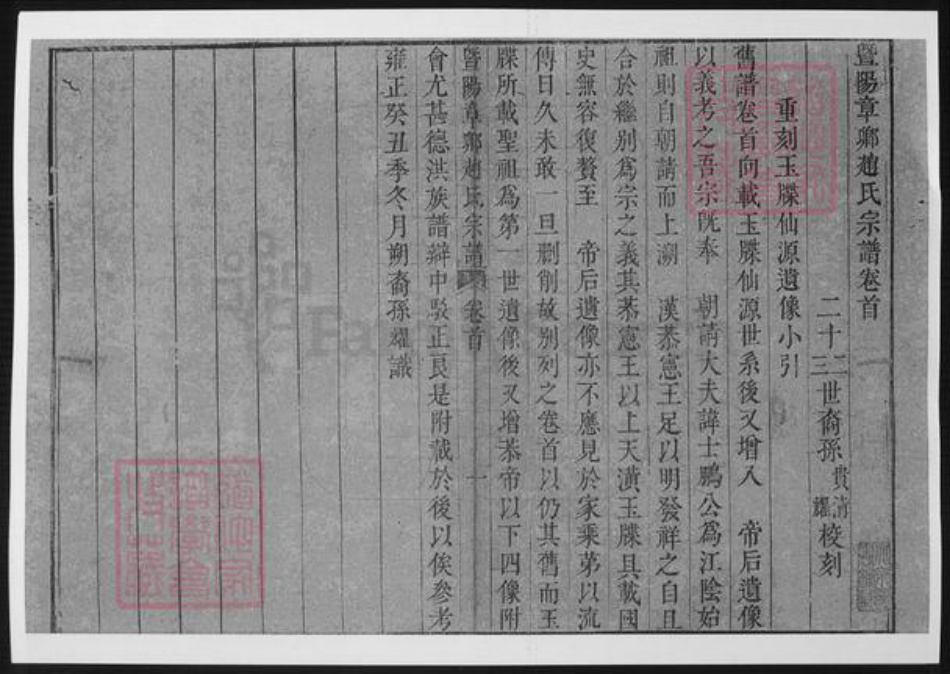 暨陽章鄉趙氏宗譜卷首
二十二三世裔孫貴清耀校刻
重刻玉牒仙源遺像小引
舊譜卷首向載玉牒仙源世系後又增入 帝后遺像
以義考之吾宗既奉 朝請大夫諱士鵬公爲江陰始
祖則自朝請而上溯 漢恭憲王足以明發祥之自且
合於繼別爲宗之義其恭憲王以上天潢玉牒具載國
史無容復贅至 帝后遺像亦不應見於家乘第以流
傳日久未敢一旦刪削故別列之卷首以仍其舊而玉
牒所載聖祖爲第一世遺像後又增恭帝以下四像附
暨陽章鄉趙氏宗譜 卷首 一
會尤甚德洪族譜辯中駁正良是附載於後以俟叅考
雍正癸丑季冬月朔裔孫耀識